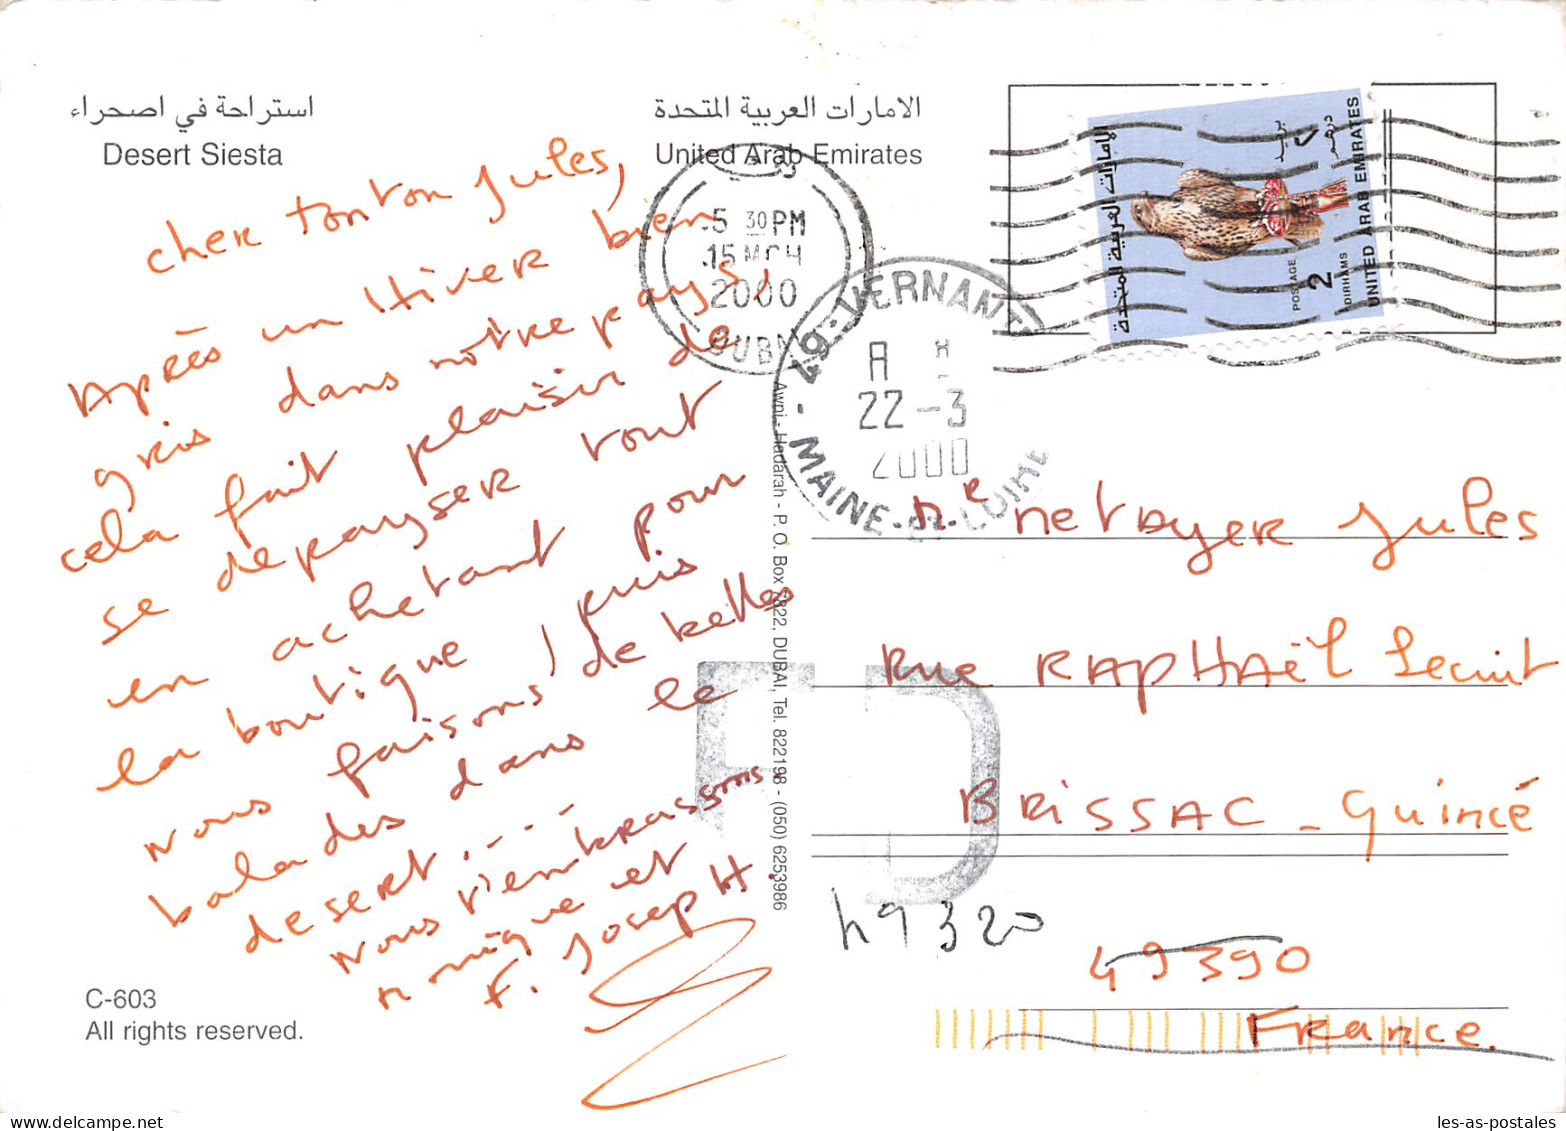 استراحة في اصحراء
Desert Siesta
الامارات العربية المتحدة
United Arab Emirates
cher tonton Jules,
Après un Hiver bien
gris dans nôtre pays,
cela fait plaisir de
se dépayser tout
en achetant pour
la boutique, puis
nous faisons de belles
balades dans le
désert...
Nous t'embrassons.
et
F. Joseph.
C-603
All rights reserved.
5 30 PM
15 MCH
2000
DUBAI
49 - VERNAN
A
22 - 3
2000
MAINE-ET-LOIRE
الإمارات العربية المتحدة
بريد ٢ درهم
POSTAGE 2 DIRHAMS
UNITED ARAB EMIRATES
Awni - Hadarah - P. O. Box 7822, DUBAI, Tel. 822198 - (050) 6253986
Mr Netayer Jules
Rue RAPHAËL Lecuit
BRISSAC - Quincé
49320
49390
France.
les-as-postales